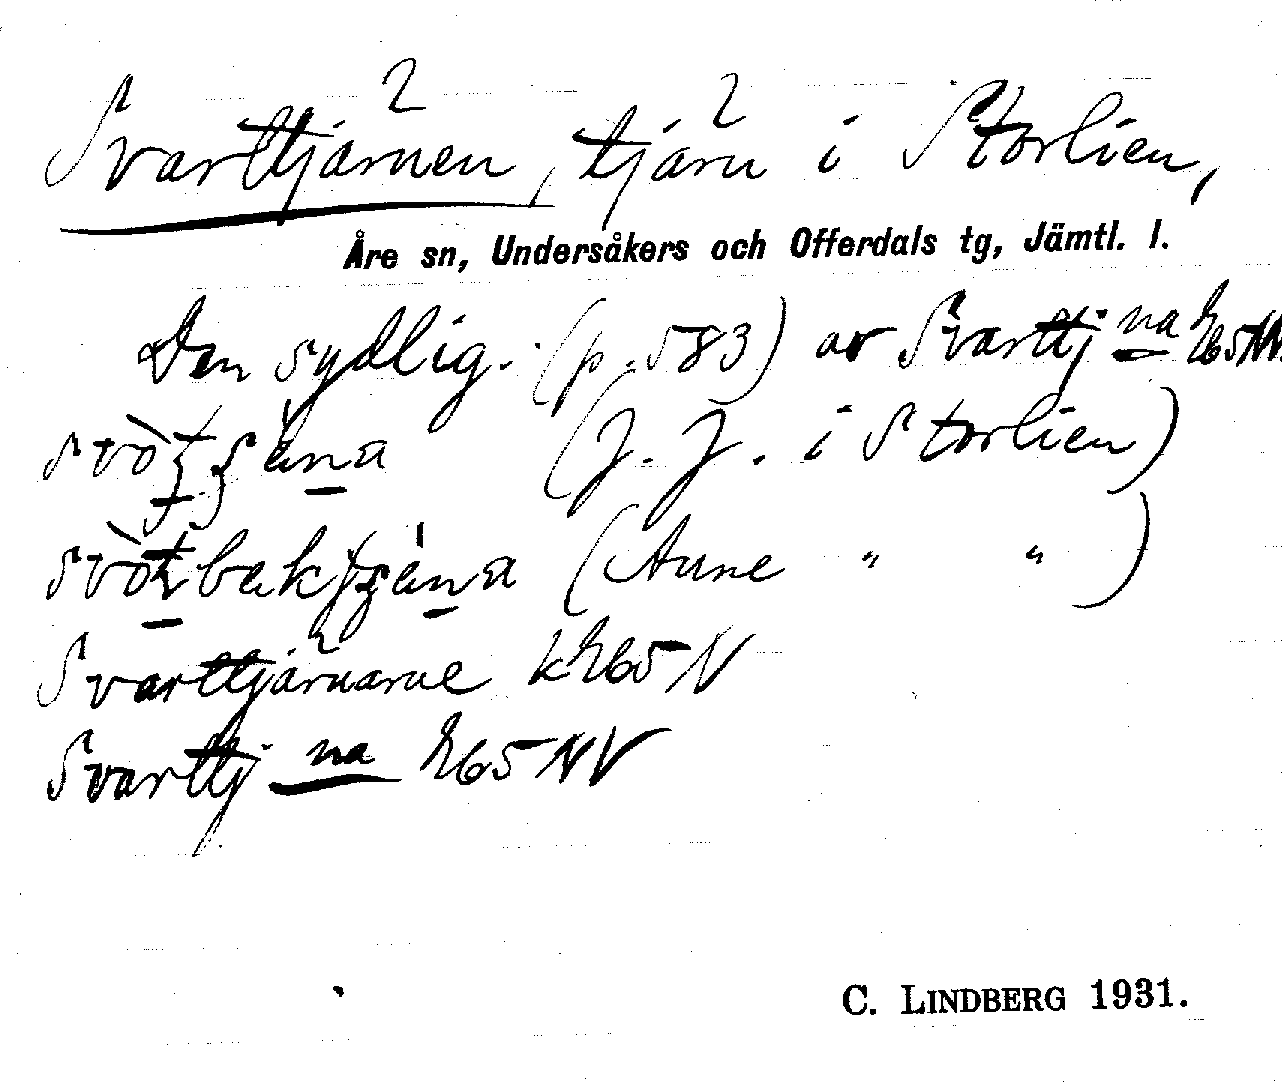 Svarttjärnen, tjärn i Storlien,
Åre sn, Undersåkers och Offerdals tg, Jämtl. l.
Den sydlig. (p. 583) av Svarttj na
(J. J. i Storlien)
(Aune " ")
Svarttjärnarne k265 N
Svarttj na 265 NV
C. LINDBERG 1931.